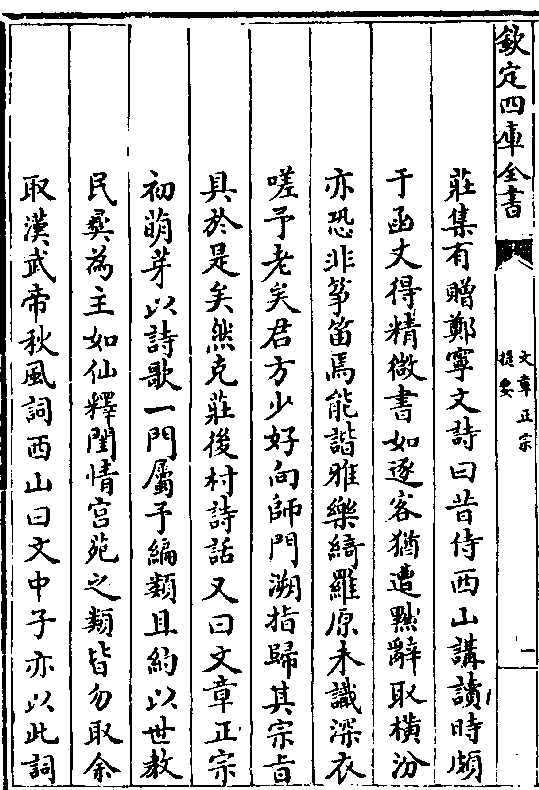 欽定四庫全書
文章正宗
提要
一
莊集有贈鄭寧文詩曰昔侍西山講讀時頗
于函丈得精微書如逐客猶遭黜辭取橫汾
亦恐非筝笛焉能諧雅樂綺羅原未識深衣
嗟予老矣君方少好向師門溯指歸其宗旨
具於是矣然克莊後村詩話又曰文章正宗
初萌芽以詩歌一門屬予編類且約以世教
民彛為主如仙釋閨情宫苑之類皆勿取余
取漢武帝秋風詞西山曰文中子亦以此詞